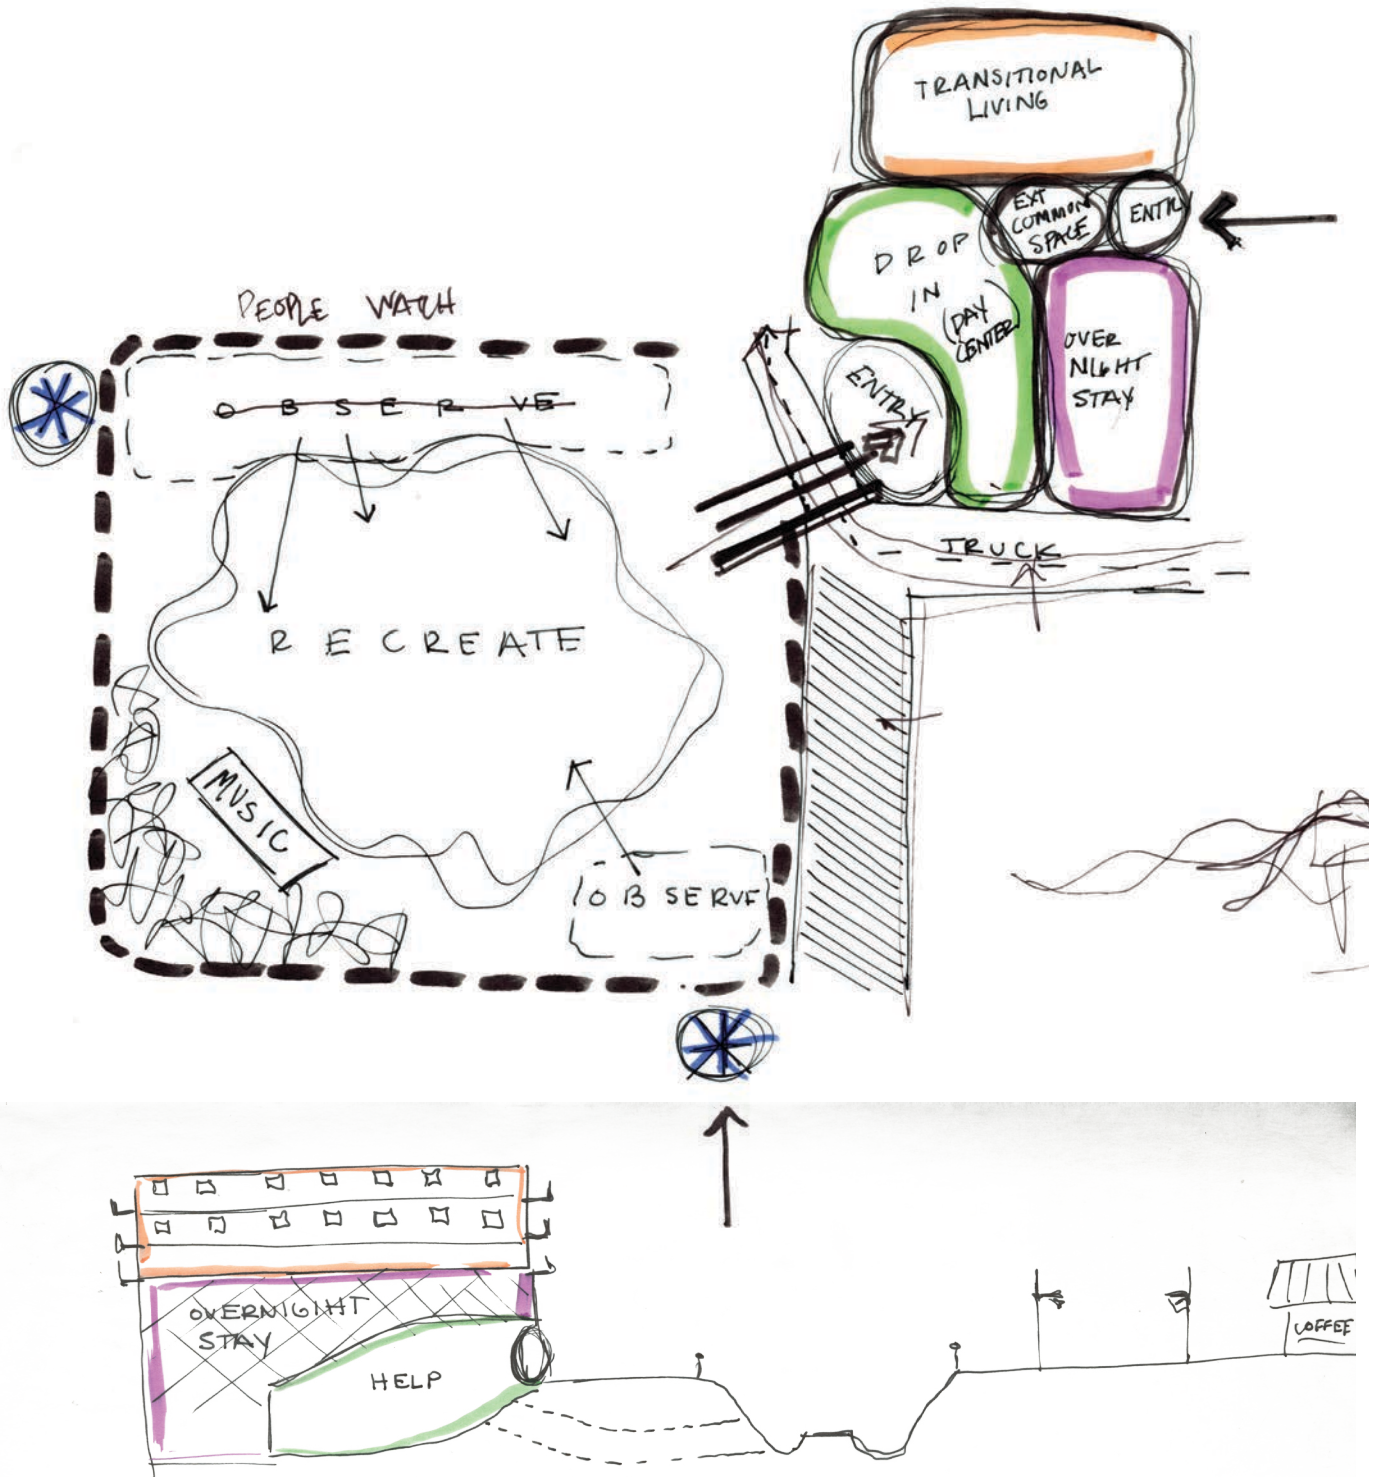 TRANSITIONAL
LIVING
EXT
COMMON
SPACE
ENTR
DROP
IN
(DAY
CENTER)
OVER
NIGHT
STAY
ENTRY
PEOPLE WATCH
OBSERVE
TRUCK
RECREATE
MUSIC
OBSERVE
OVERNIGIHT
STAY
HELP
COFFEE